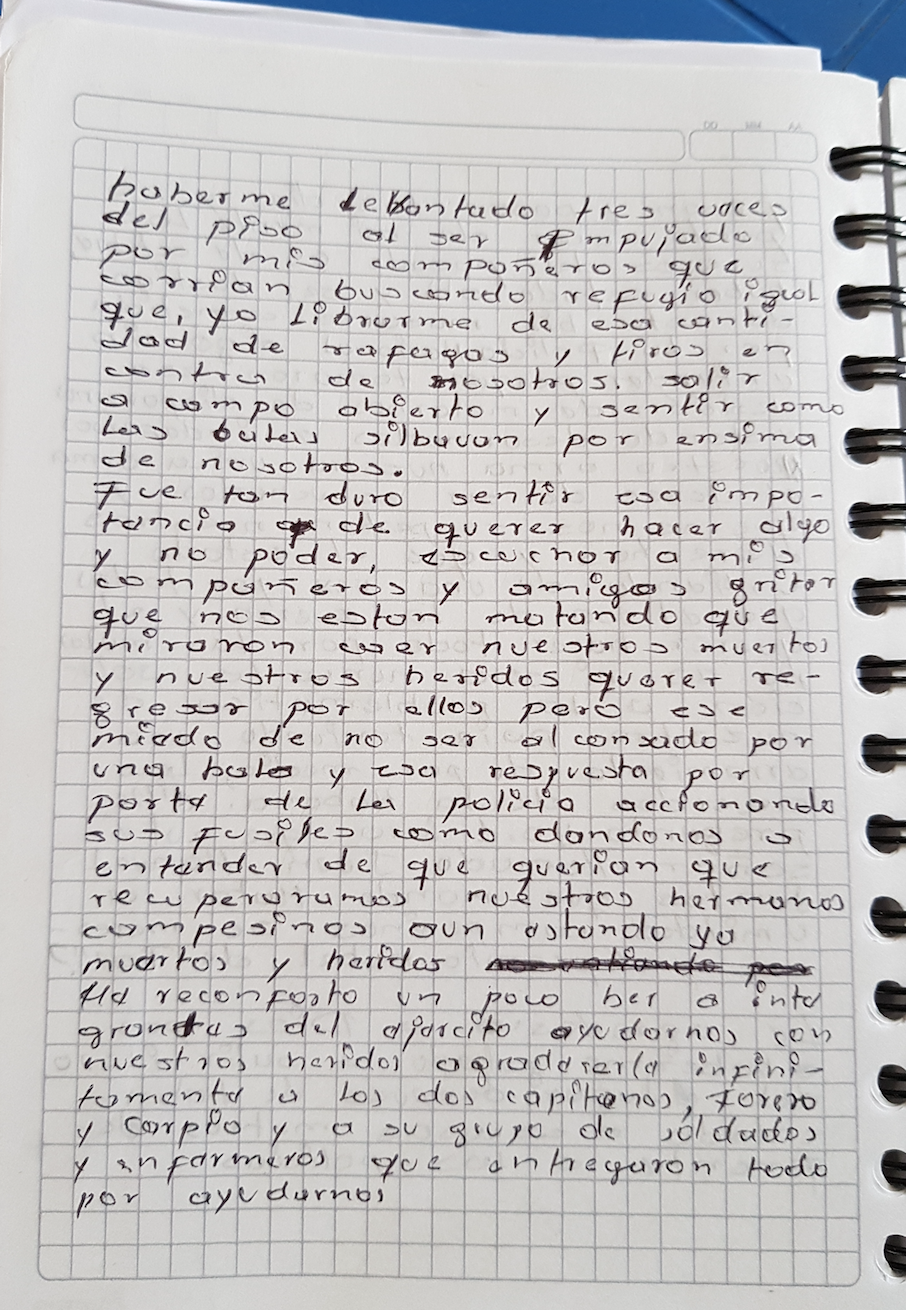 haberme levantado tres veces
del piso al ser empujado
por mis compañeros que
corrian buscando refugio igual
que, yo librarme de esa canti-
dad de rafagas y tiros en
contra de nosotros. salir
a campo abierto y sentir como
las balas silbavan por ensima
de nosotros.
Fue tan duro sentir esa impo-
tancia de querer hacer algo
y no poder, escuchar a mis
compañeros y amigos gritar
que nos estan matando que
miraron caer nuestros muertos
y nuestros heridos querer re-
gresar por ellos pero ese
miedo de no ser alcansado por
una bala y esa respuesta por
parte de la policia accionando
sus fusiles como dandonos a
entender de que querian que
recuperaramos nuestros hermanos
campesinos aun estando ya
muertos y heridos
Me reconforto un poco ber a inte
grantes del ejercito ayudarnos con
nuestros heridos agradeserle infini-
tamente a los dos capitanes, Forero
y Carpio y a su grupo de soldados
y enfermeros que entregaron todo
por ayudarnos